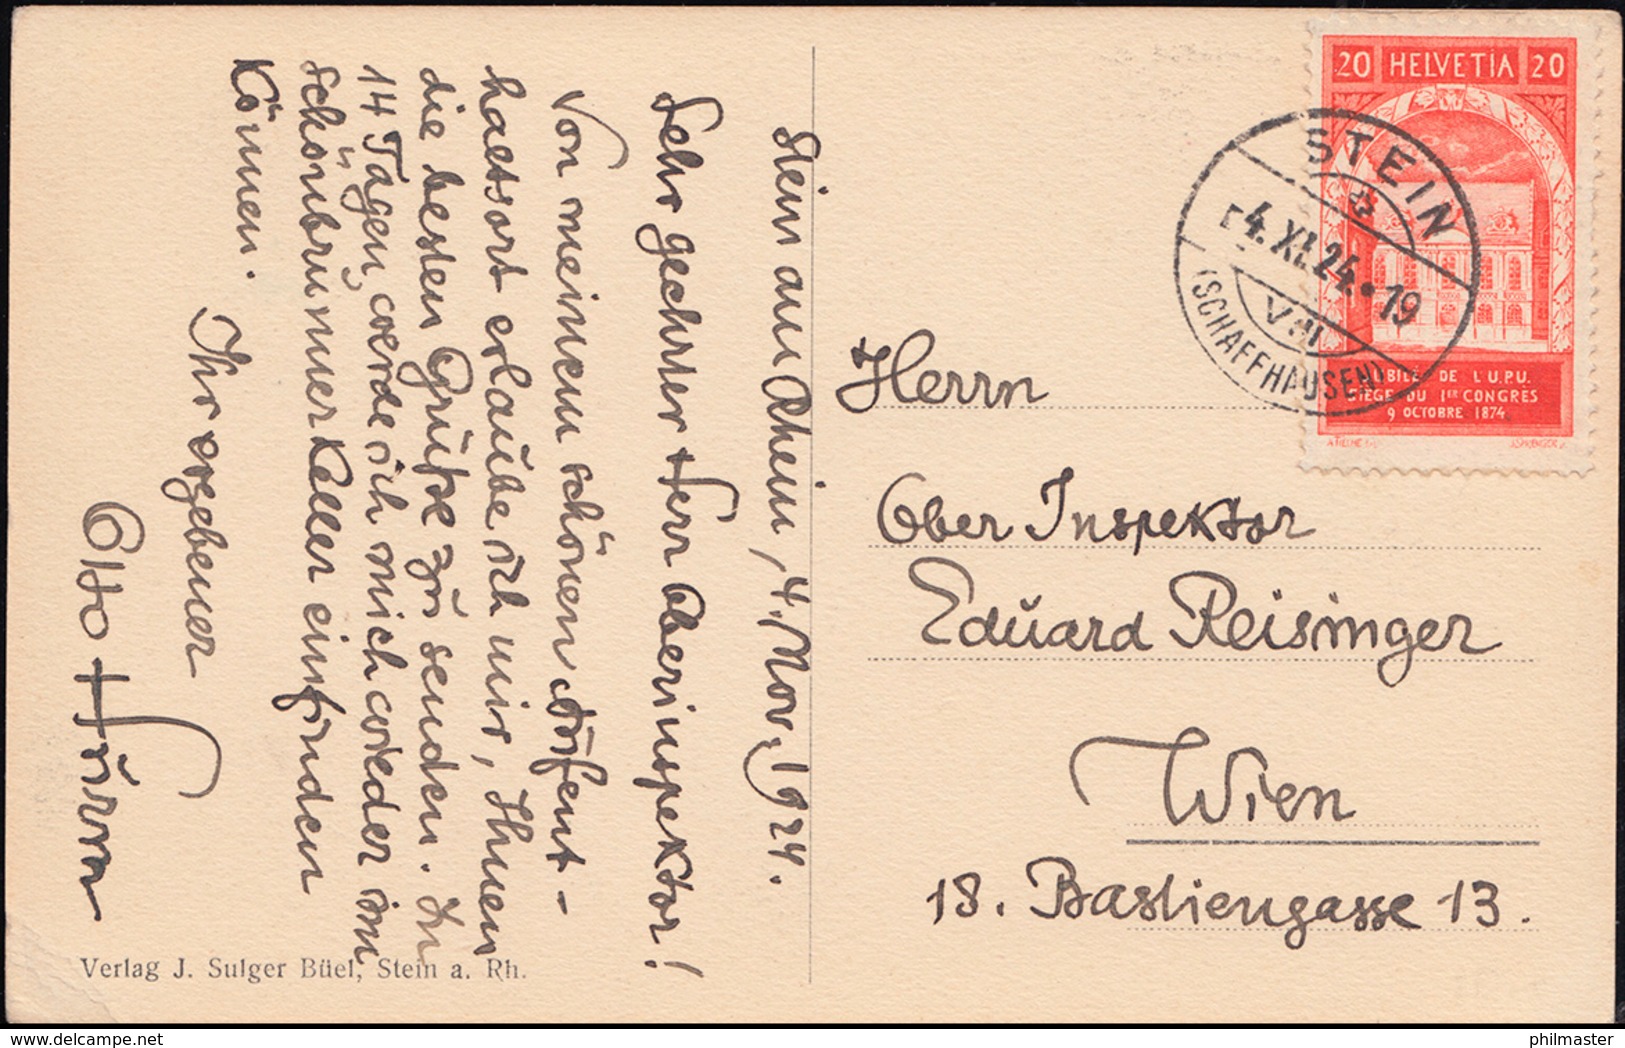 Stein am Rhein, 4. Nov. 1924.
Sehr geehrter Herr Oberinspektor!
Von meinem schönen Aufent-
haltsort erlaube ich mir, Ihnen
die besten Grüße zu senden. In
14 Tagen werde ich mich wieder im
Schönbrunnerkeller einfinden
können.
Ihr ergebener
Otto
Verlag J. Sulger Büel, Stein a. Rh.
20 HELVETIA 20
STEIN
4.XI.24.19
VIII
(SCHAFFHAUSEN)
JUBILÉ DE L'U.P.U.
SIÈGE DU 1ER CONGRÈS
9 OCTOBRE 1874
Herrn
Ober Inspektor
Eduard Reisinger
Wien
18. Bastiengasse 13.
philmaster